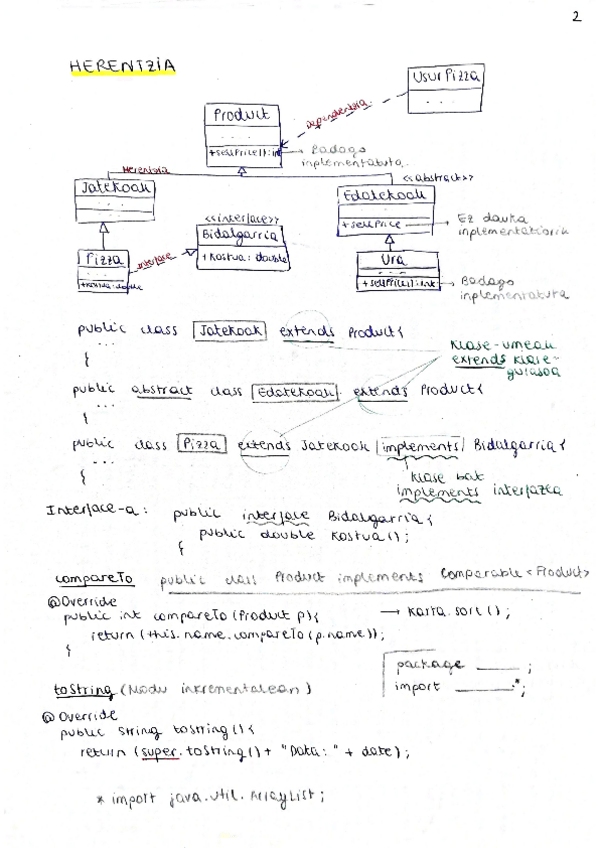 2
HERENTZIA
UsurPizza
. . .
Product
. . .
+sellPrice(): int
dependentzia
Badago
inplementatuta.
Herentzia
<<abstract>>
Jatekoak
. . .
Edatekoak
. . .
+sellPrice
Ez dauka
inplementaziorik
<<interface>>
Bidalgarria
+ Kostua : double
Pizza
. . .
+Kostua: double
interface
Ura
. . .
+ sellPrice(): int
Badago
inplementatuta
public class Jatekoak extends Product{
...
}
Klase-umeak
extends klase-
gurasoa
public abstract class Edatekoak extends Product{
...
}
public class Pizza extends Jatekoak implements Bidalgarria {
...
}
Klase bat
implements interfazea
Interface-a: public interface Bidalgarria {
public double Kostua();
}
compareTo public class Product implements Comparable <Product>
@Override
public int compareTo (Product p){ → Karta.sort();
return (this.name.compareTo(p.name));
}
package ____ ;
import ____.*;
toString (Modu inkrementalean)
@Override
public String toString() {
return (super.toString() + "Data: " + date);
* import java.util.ArrayList;